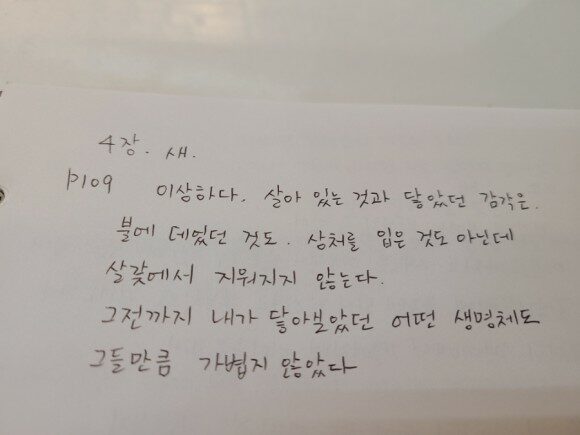 4장. 새.
P109 이상하다. 살아 있는 것과 닿았던 감각은.
불에 데였던 것도. 상처를 입은 것도 아닌데
살갗에서 지워지지 않는다.
그전까지 내가 닿아보았던 어떤 생명체도
그들만큼 가볍지 않았다